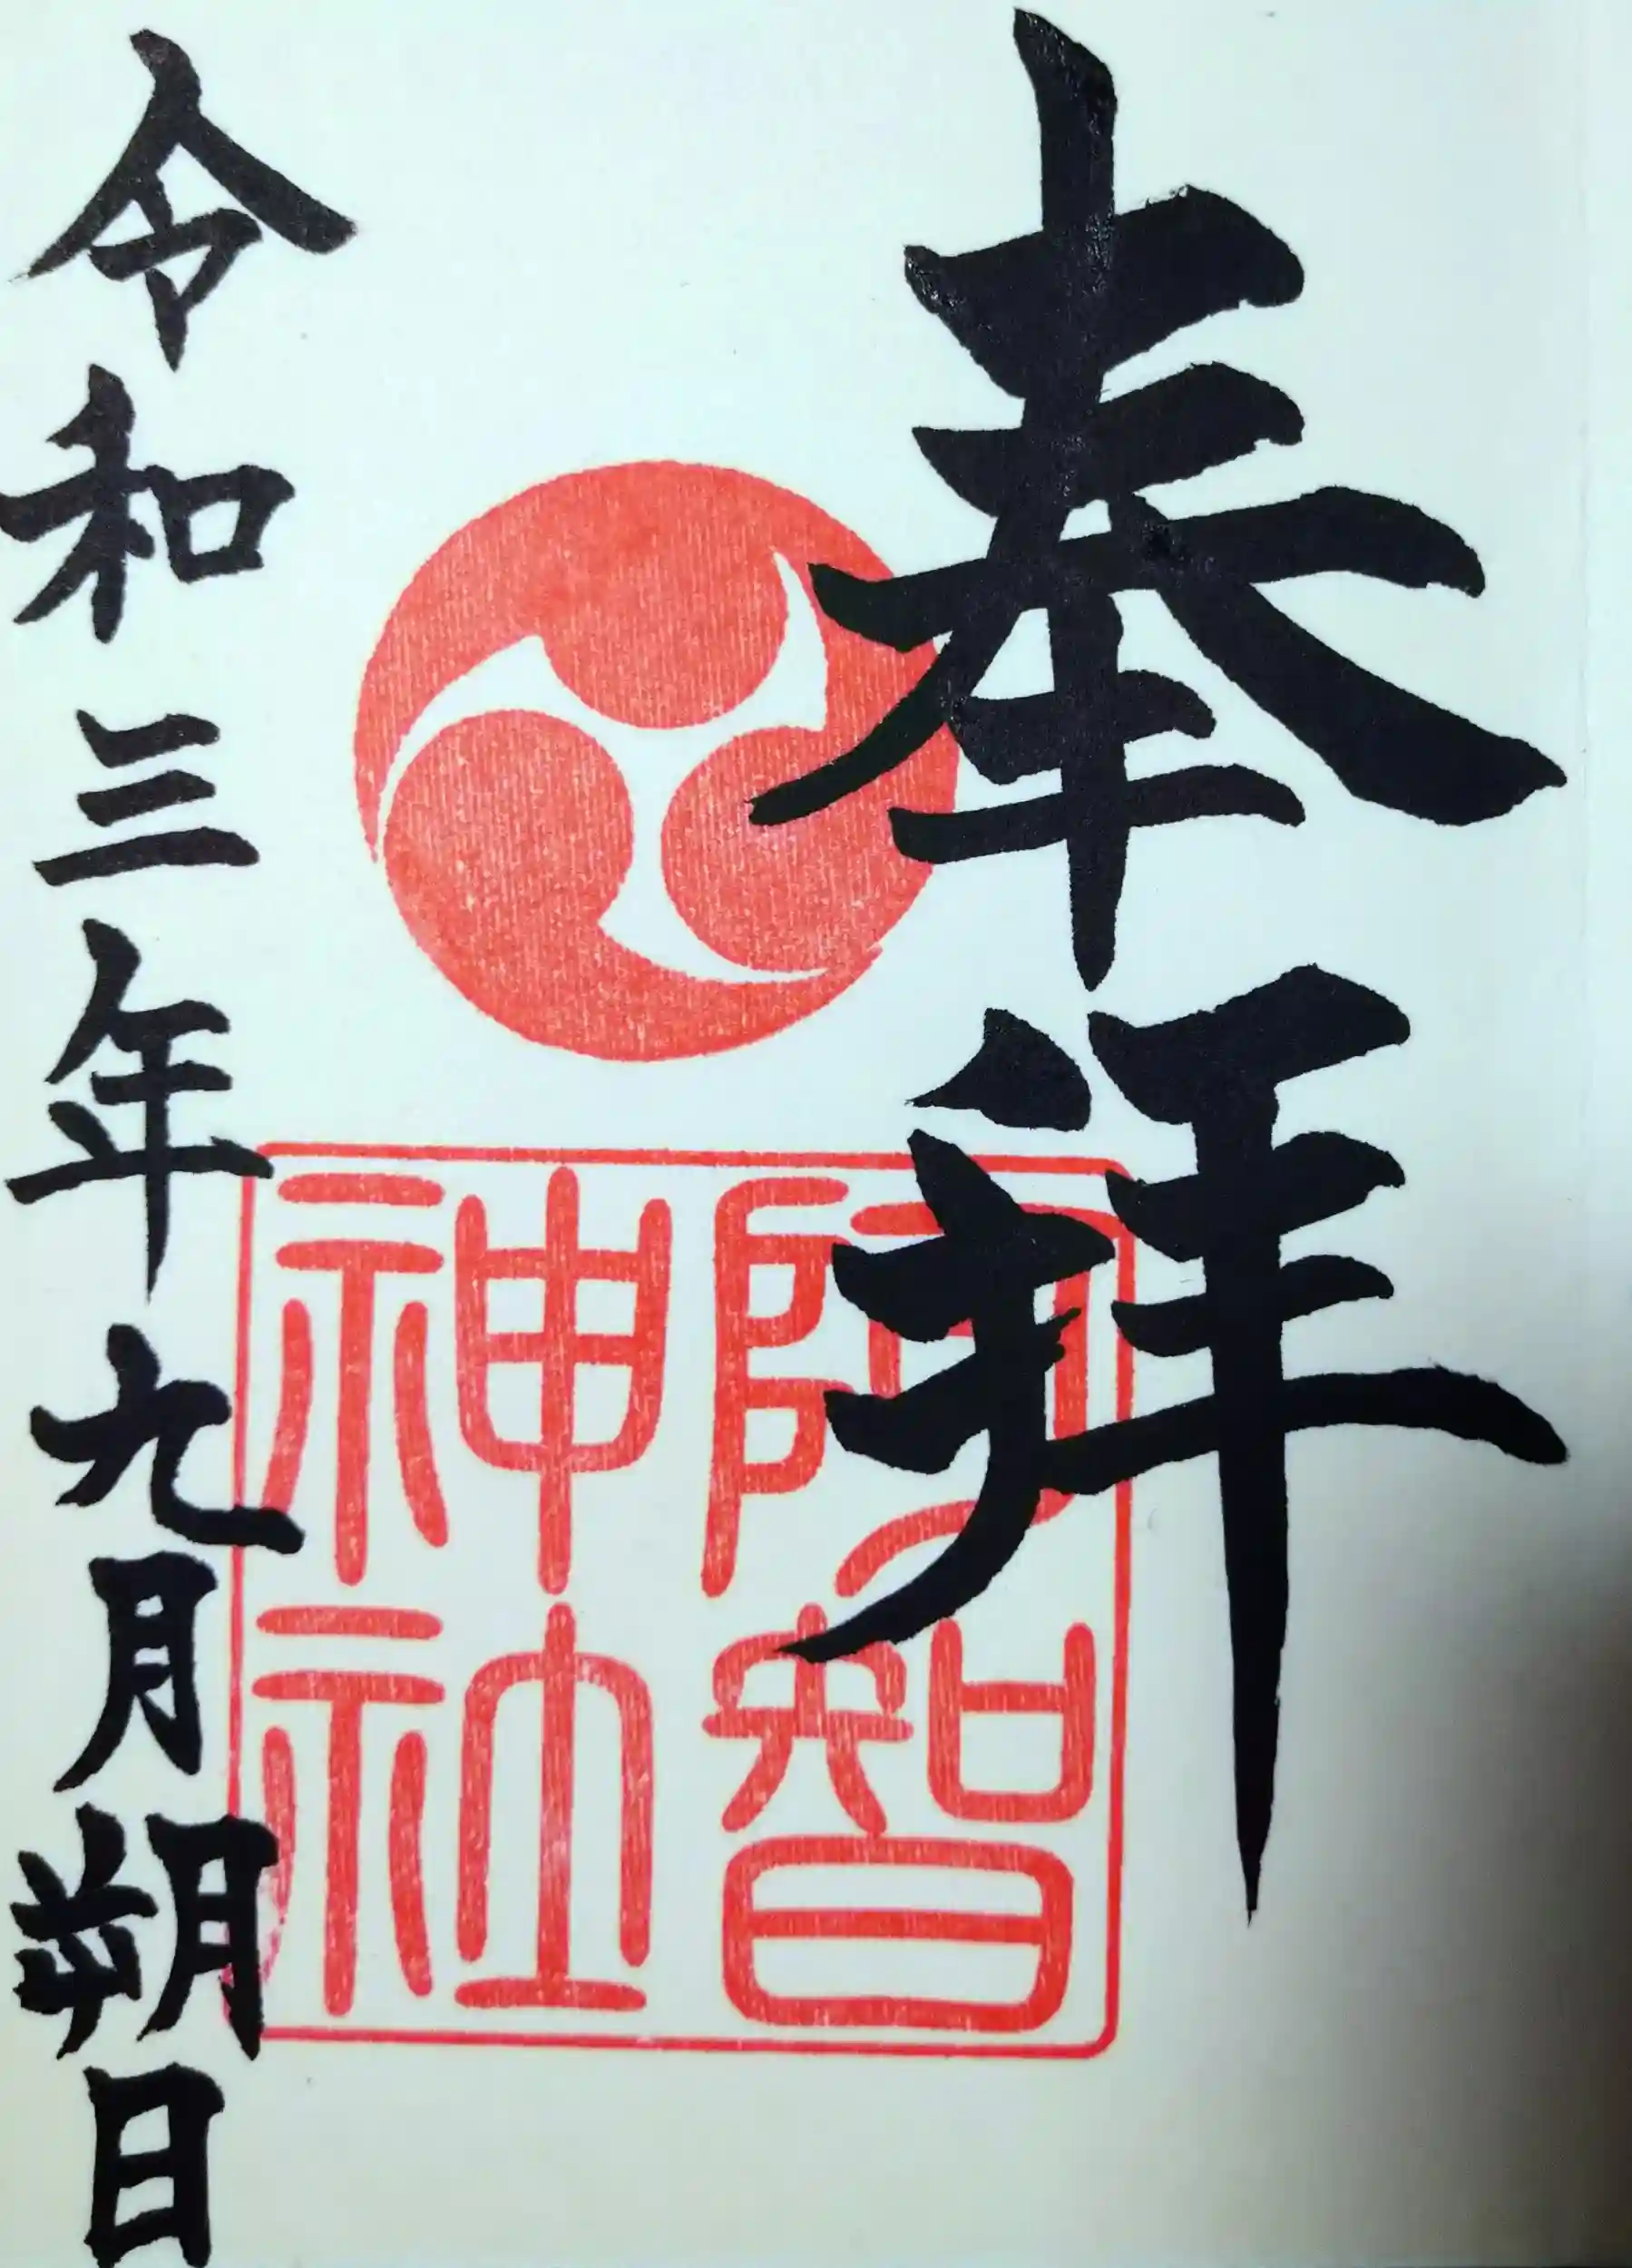 奉拝
阿智
神社
令和三年九月朔日